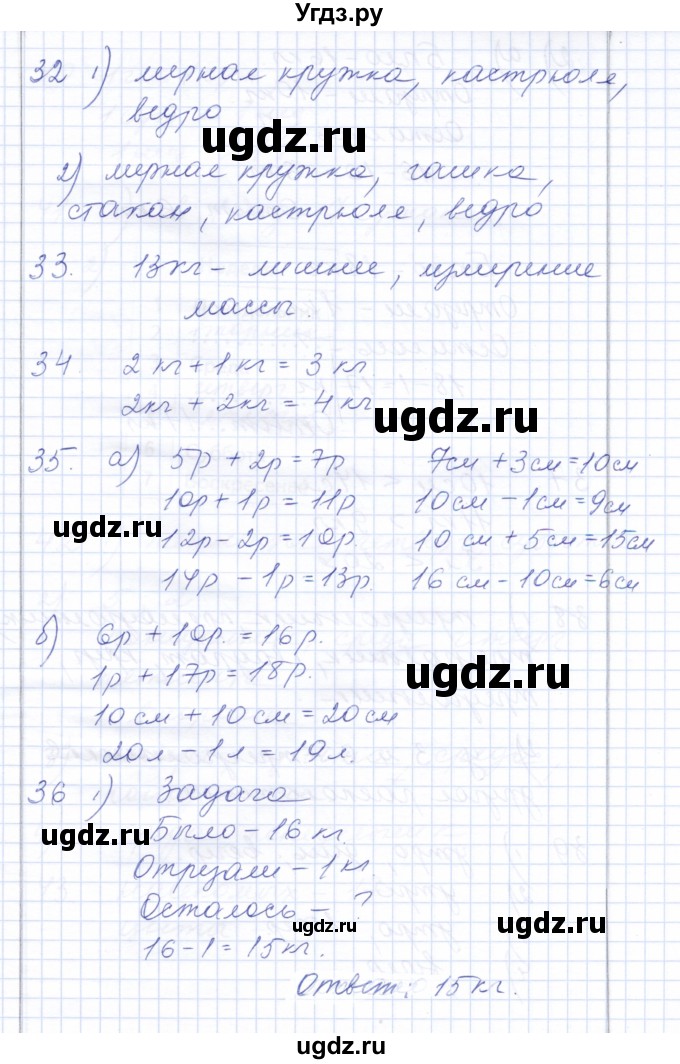 Угдз.ру
32 1) мерная кружка, кастрюля,
ведро
ugdz.ru
2) мерная кружка, чашка,
стакан, кастрюля, ведро
33. 13кг - лишнее, измерение
массы.
34. 2 кг + 1 кг = 3 кг.
2кг + 2кг = 4 кг
ugdz.ru
35. а) 5р + 2р = 7р 7см + 3см = 10см
10р + 1р = 11р 10см - 1см = 9см
ugdz.ru
12р - 2р = 10р 10 см + 5см = 15см
14р - 1р = 13р. 16 см - 10см = 6см
б) 6р + 10р. = 16р.
1р + 17р = 18р.
ugdz.ru
10см + 10см = 20см
20л - 1л = 19л.
36 1) Задача
Было - 16 кг.
ugdz.ru
Отрезали - 1кг.
Осталось - ?
ugdz.ru
16 - 1 = 15кг.
Ответ: 15кг.